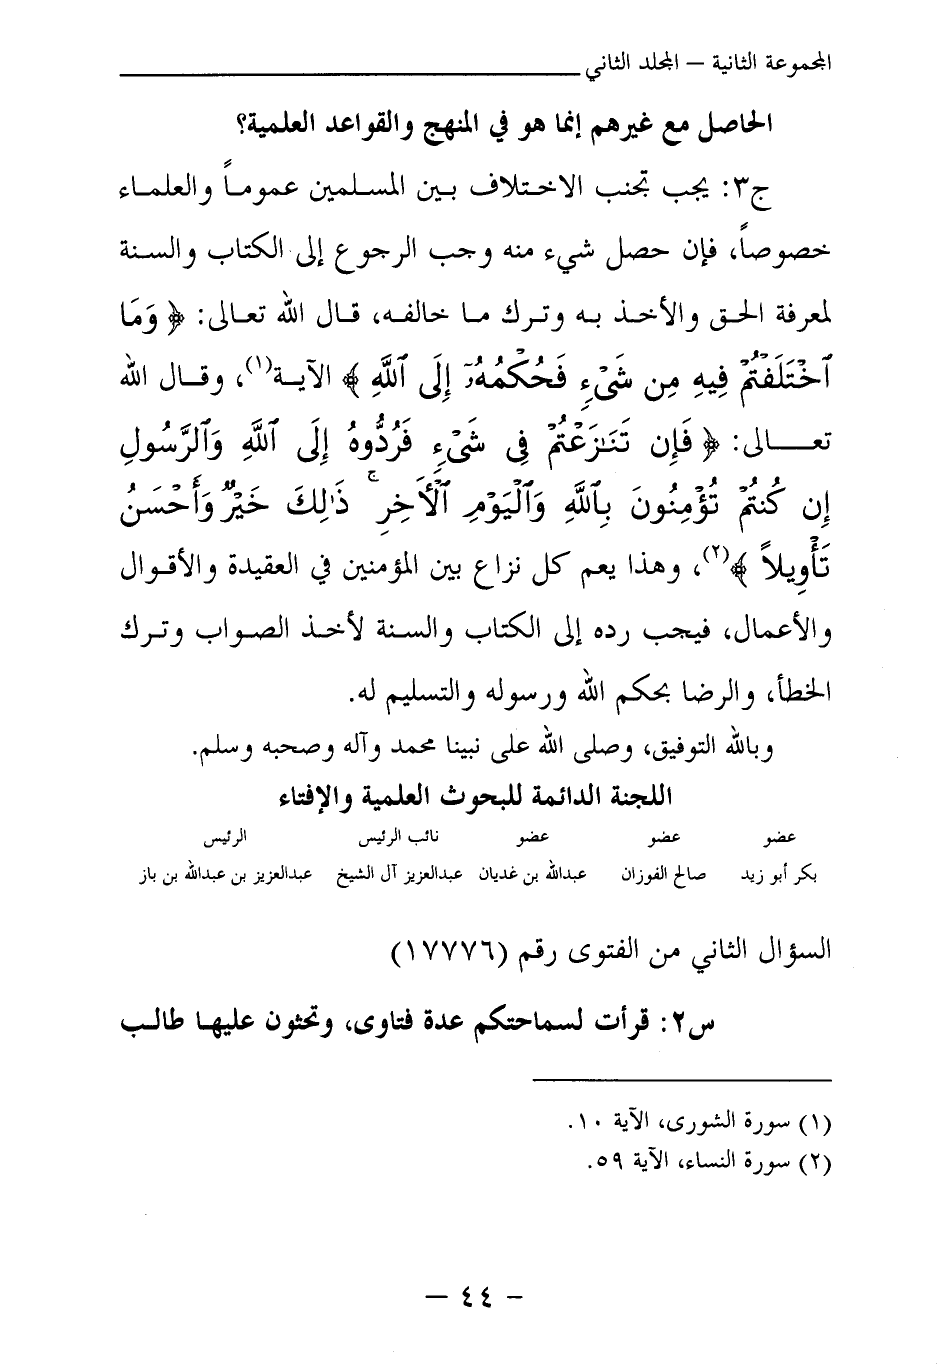 المجموعة الثانية – المجلد الثاني
الحاصل مع غيرهم إنما هو في المنهج والقواعد العلمية؟
ج٣: يجب تجنب الاختلاف بين المسلمين عموماً والعلماء
خصوصاً، فإن حصل شيء منه وجب الرجوع إلى الكتاب والسنة
لمعرفة الحق والأخذ به وترك ما خالفه، قال الله تعالى: ﴿ وَمَا
ٱخْتَلَفْتُمْ فِيهِ مِن شَىْءٍ فَحُكْمُهُۥٓ إِلَى ٱللَّهِ ﴾ الآية(١)، وقال الله
تعالى: ﴿ فَإِن تَنَٰزَعْتُمْ فِى شَىْءٍ فَرُدُّوهُ إِلَى ٱللَّهِ وَٱلرَّسُولِ
إِن كُنتُمْ تُؤْمِنُونَ بِٱللَّهِ وَٱلْيَوْمِ ٱلْأَخِرِ ۚ ذَٰلِكَ خَيْرٌ وَأَحْسَنُ
تَأْوِيلاً ﴾(٢)، وهذا يعم كل نزاع بين المؤمنين في العقيدة والأقوال
والأعمال، فيجب رده إلى الكتاب والسنة لأخذ الصواب وترك
الخطأ، والرضا بحكم الله ورسوله والتسليم له.
وبالله التوفيق، وصلى الله على نبينا محمد وآله وصحبه وسلم.
اللجنة الدائمة للبحوث العلمية والإفتاء
عضو عضو عضو نائب الرئيس الرئيس
بكر أبو زيد صالح الفوزان عبدالله بن غديان عبدالعزيز آل الشيخ عبدالعزيز بن عبدالله بن باز
السؤال الثاني من الفتوى رقم (١٧٧٧٦)
س٢: قرأت لسماحتكم عدة فتاوى، وتحثون عليها طالب
(١) سورة الشورى، الآية ١٠.
(٢) سورة النساء، الآية ٥٩.
– ٤٤ –